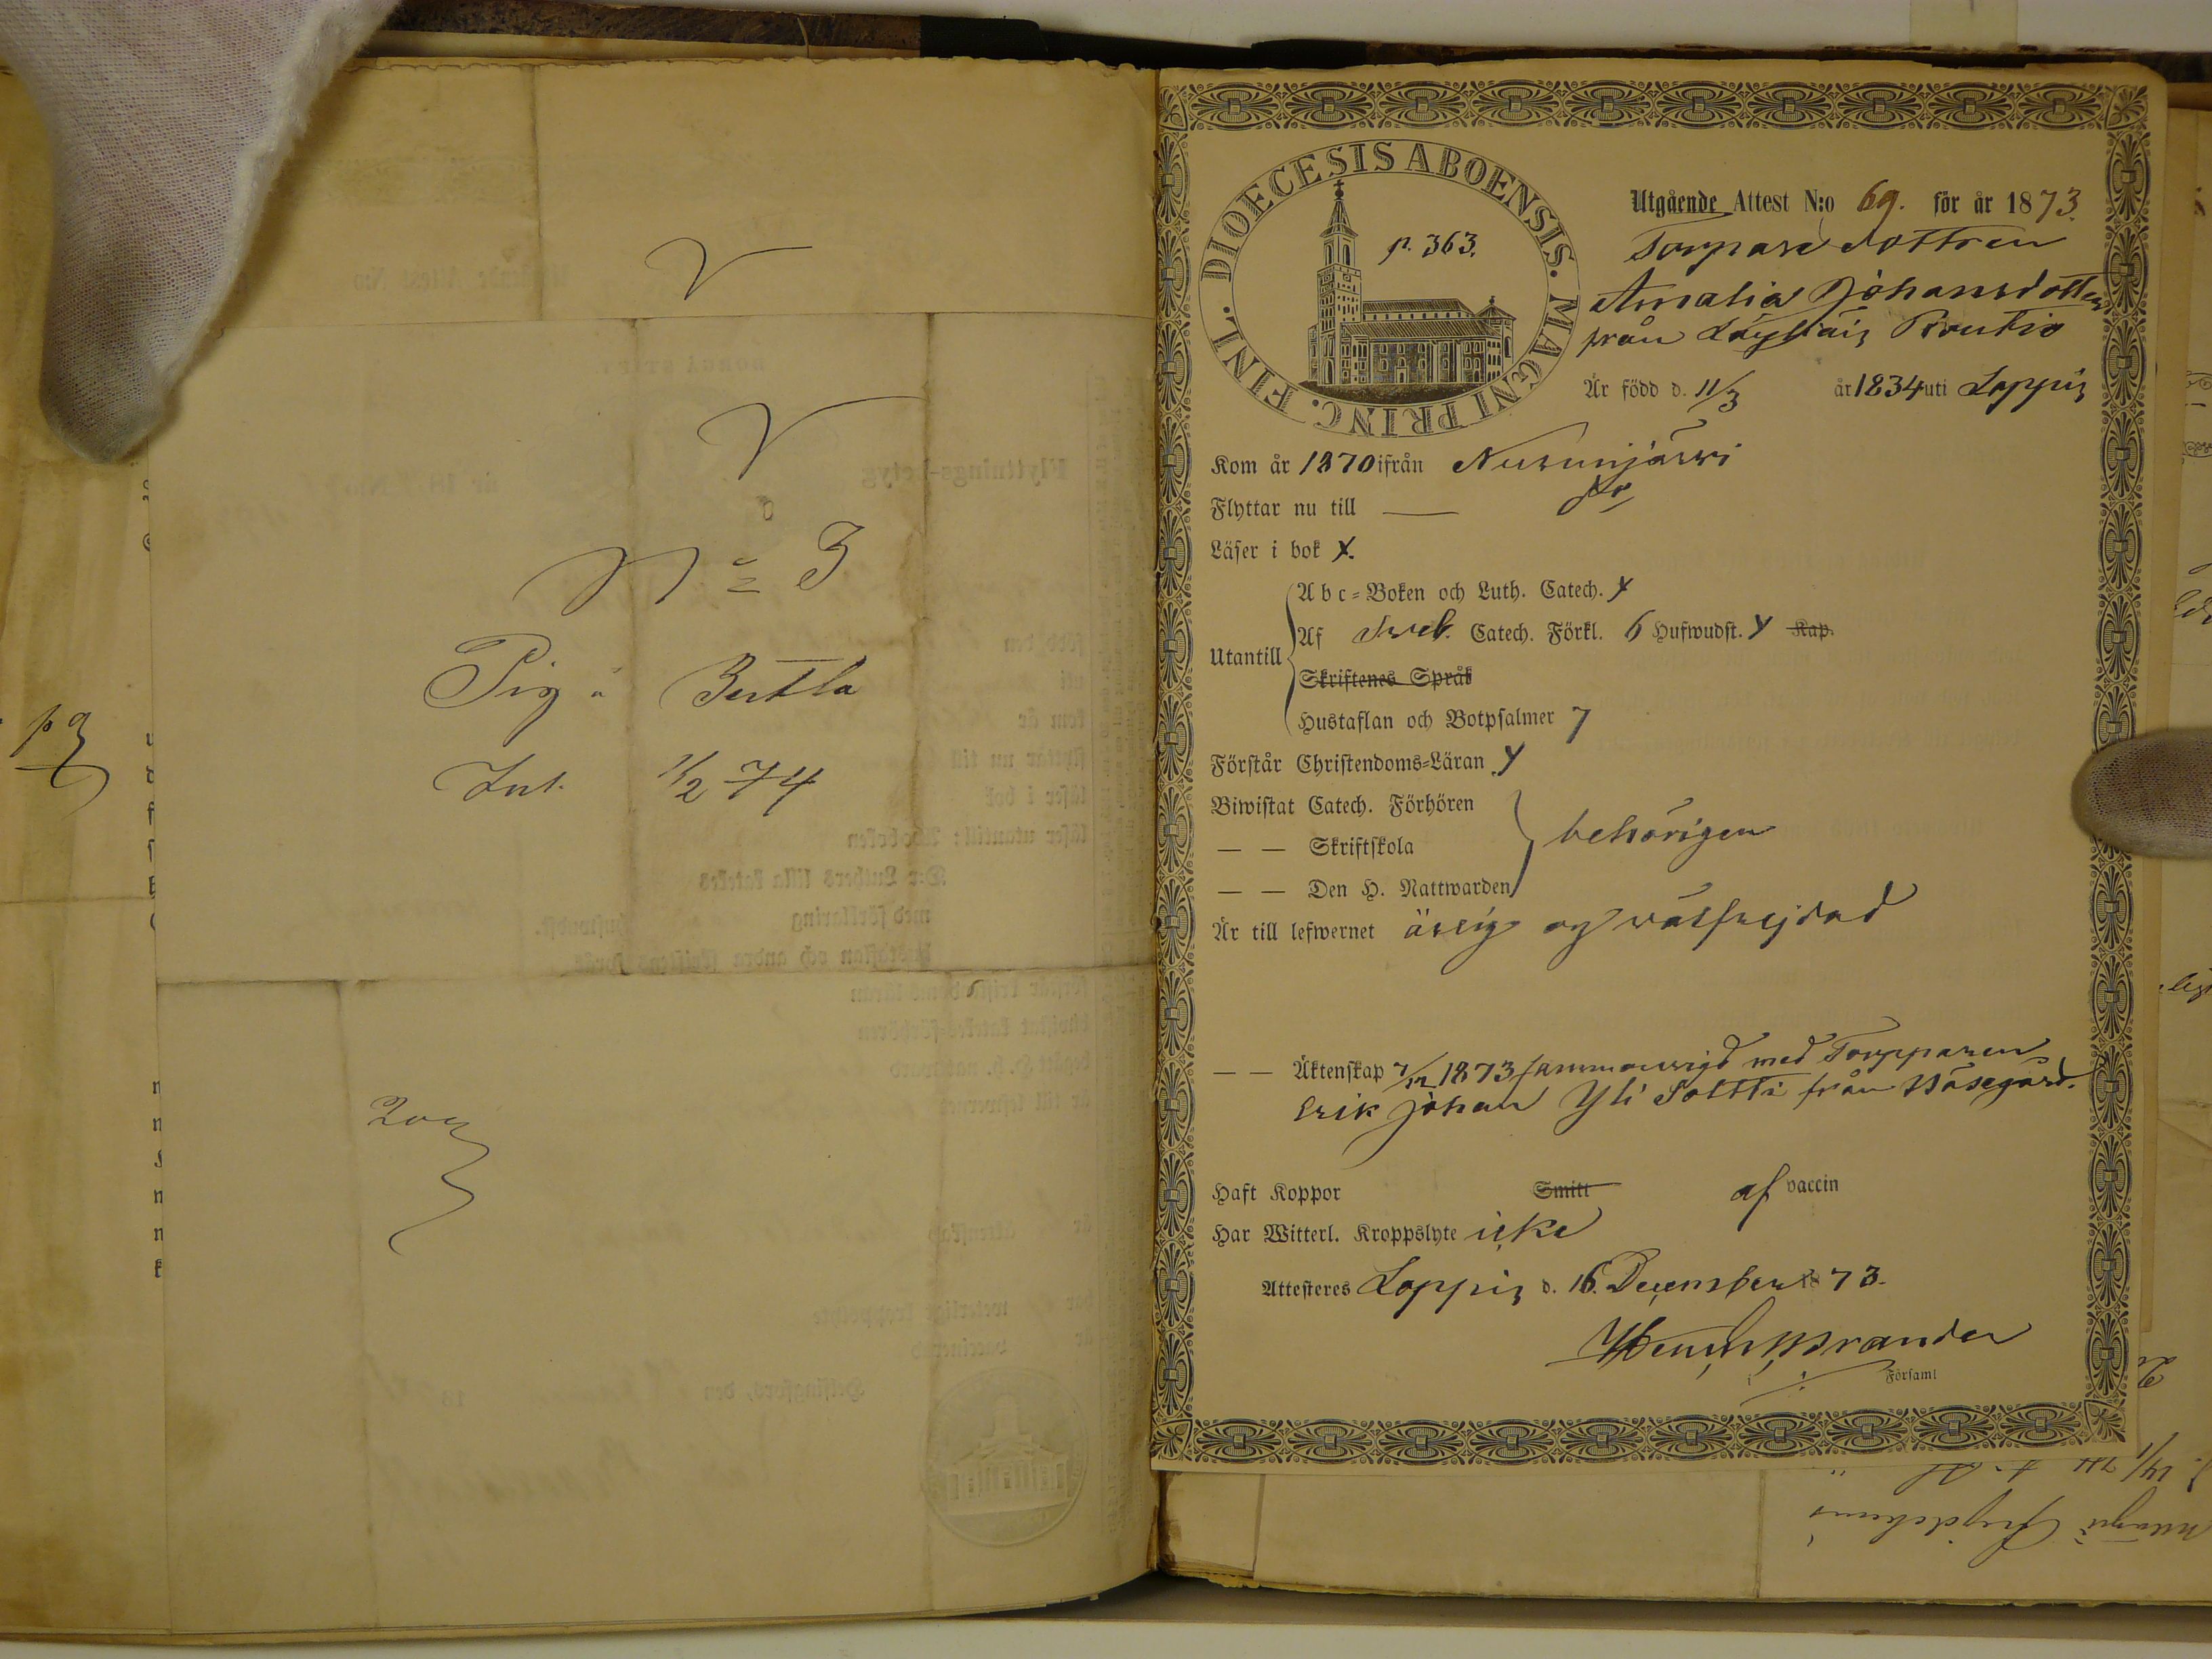 N:o 3
Pig å Bertla
Int. 1/2 74
DIOECESIS ABOENSIS. MAGNI PRINC. FINL.
p. 363.
Utgående Attest N:o 69. för år 1873.
Torpare dottren
Amalia Johansdotter
från Läyliäis
Är född d. 11/3 år 1834 uti Loppis
Kom år 1870 ifrån Nurmijärvi
Flyttar nu till —
Läser i bok
Utantill
A b c-Boken och Luth. Catech.
Af Sveb. Catech. Förkl. 6 Hufwudst. Kap.
Skriftenes Språk
Hustaflan och Botpsalmer
Förstår Christendoms-Läran
Biwistat Catech. Förhören
— — Skriftskola behörigen
— — Den H. Nattwarden
Är till lefwernet ärlig og välfrejdad
— — Äktenskap 7/12 1873 sammanvigd med Torpparen
Erik Johan Yli Soltti från
Haft Koppor Smitt af vaccin
Har Witterl. Kroppslyte icke
Attesteres Loppis d. 16. December 1873.
Brander
i Församl